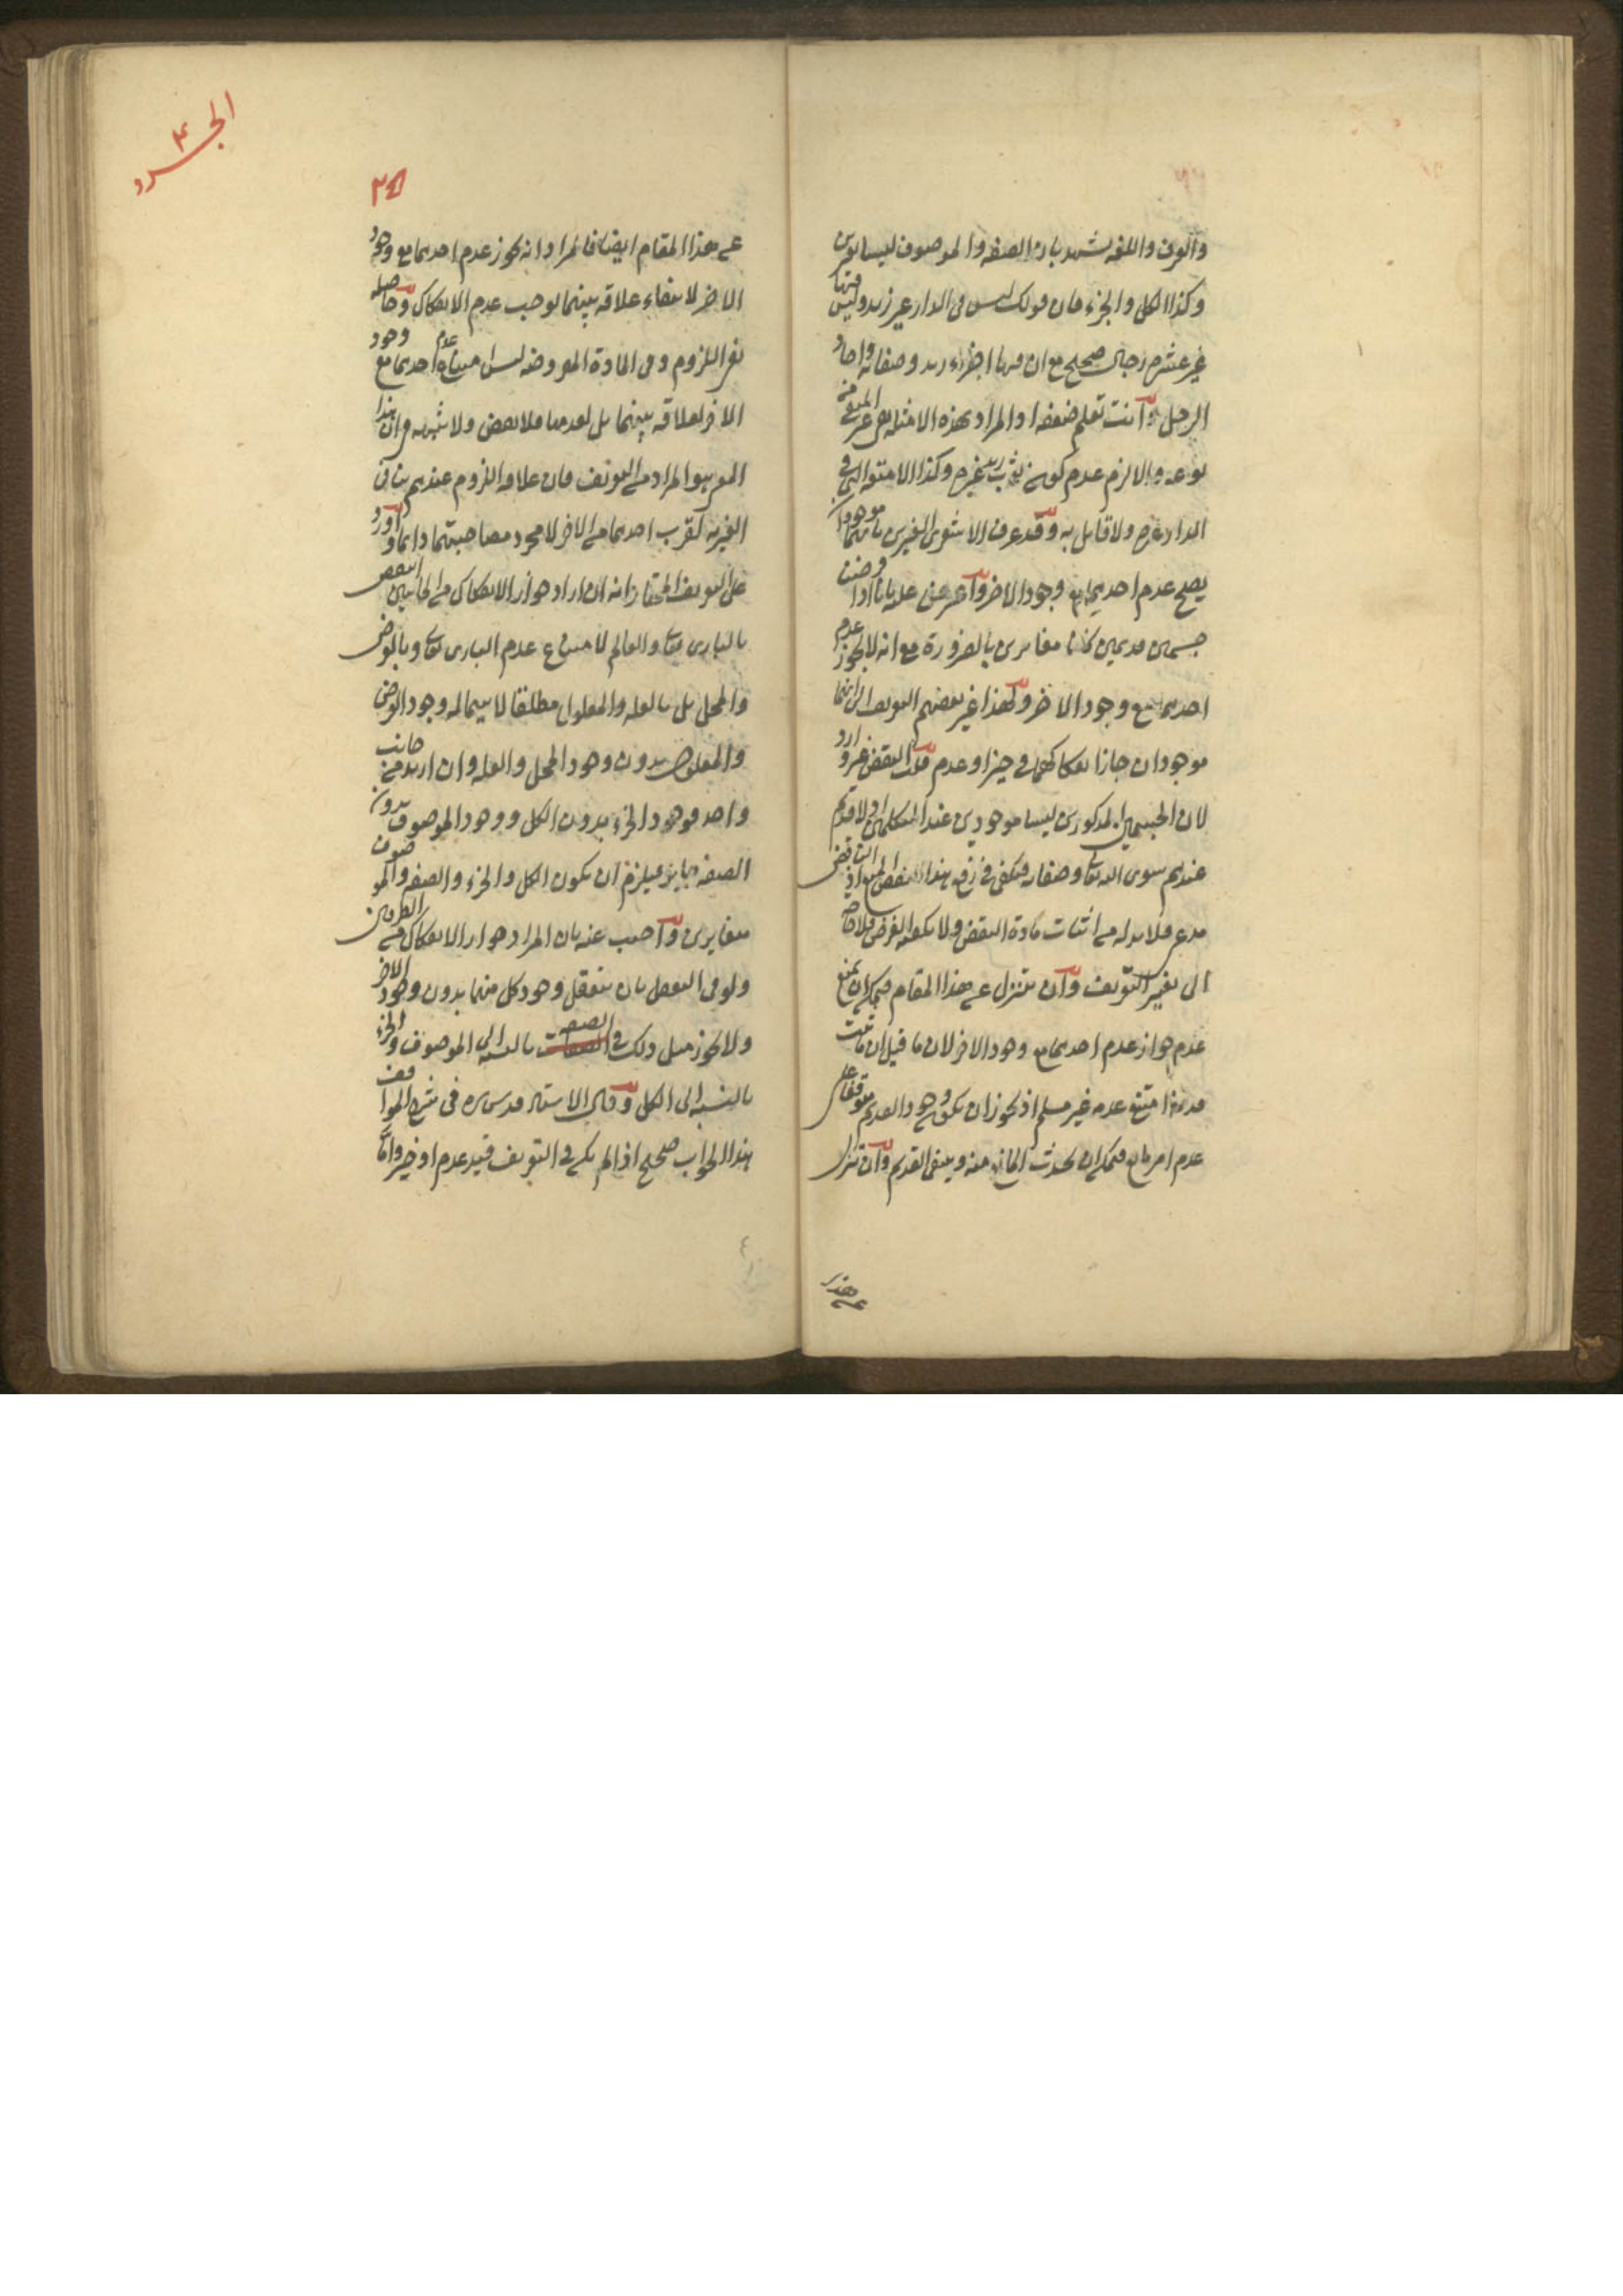 والعرف واللغة يشهد بان الصفة والموصوف ليسا بغيرين
وكذا الكل والجزء فان قولك ليس في الدار غير زيد وليس فيها
غير عشرة رجال صحيح مع ان فيها اجزاء زيد وصفاته واحاد
الرجل وانت تعلم ضعفه اذ المراد بهذه الامثلة نفي غير المعنى من
نوعه والا لزم عدم كون ثوب زيد غيره وكذا الامتعة التي في
الدار غيره ولا قايل به وقد عرف الاشعرى الغيرين بانهما موجودان
يصح عدم احدهما مع وجود الاخر واعترض عليه بانا اذا فرضنا
جسمين قديمين كانا متغايرين بالضرورة مع انه لا يجوز عدم
احدهما مع وجود الاخر ولهذا غير بعضهم التعريف الى انهما
موجودان جاز انفكاكهما في حيز او عدم قلت النقض غير وارد
لان الجسمين المذكورين ليسا موجودين عند المتكلمين اذ لا قديم
عندهم سوى الله تعالى وصفاته فيكفى في دفع هذا النقض المنع اذ الناقض
مدع فلا بد له من اثبات مادة النقض ولا يكفيه الفرض فلا حاجة
الى تغيير التعريف وان تنزل عن هذا المقام فيمكن ان يمنع
عدم جواز عدم احدهما مع وجود الاخر لان ما قيل ان ما ثبت
قدمه امتنع عدمه غير مسلم اذ يجوز ان يكون وجود القديم موقوفا على
عدم امر مانع فيمكن ان يحدث المانع منه وينتفى القديم وان تنزل
عن هذا
الجرد
٣
٣٥
عن هذا المقام ايضا فالمراد انه يجوز عدم احدهما مع وجود
الاخر لانتفاء علاقة بينهما توجب عدم الانفكاك وحاصله
نفى اللزوم وفى المادة المفروضة ليس امتناع عدم احدهما مع وجود
الاخر لعلاقة بينهما بل لقدمهما فلا نقض ولا شبهة في ان هذا
المعنى هو المراد من التعريف فان علاقة اللزوم عندهم ينافي
الغيرية لقرب احدهما من الاخر لا مجرد مصاحبتهما دائما واورد
على التعريف المختار انه ان اراد جواز الانفكاك من الجانبين انتقض
بالبارى تعالى والعالم لامتناع عدم البارى تعالى وبالعرض
والمحل بل بالعلة والمعلول مطلقا لاستحالة وجود العرض
والمعلول بدون وجود المحل والعلة وان اريد من جانب
واحد فوجود الجزء بدون الكل ووجود الموصوف بدون
الصفة جايز فيلزم ان يكون الكل والجزء والصفة والموصوف
متغايرين واجيب عنه بان المراد جواز الانفكاك من الطرفين
ولو في التعقل بان يتعقل وجود كل منهما بدون وجود الاخر
ولا يجوز مثل ذلك في الصفة بالنسبة الى الموصوف والجزء
بالنسبة الى الكل وقال الاستاد قدس سره في شرح المواقف
هذا الجواب صحيح اذا لم يكن في التعريف قيد عدم او حيز واما